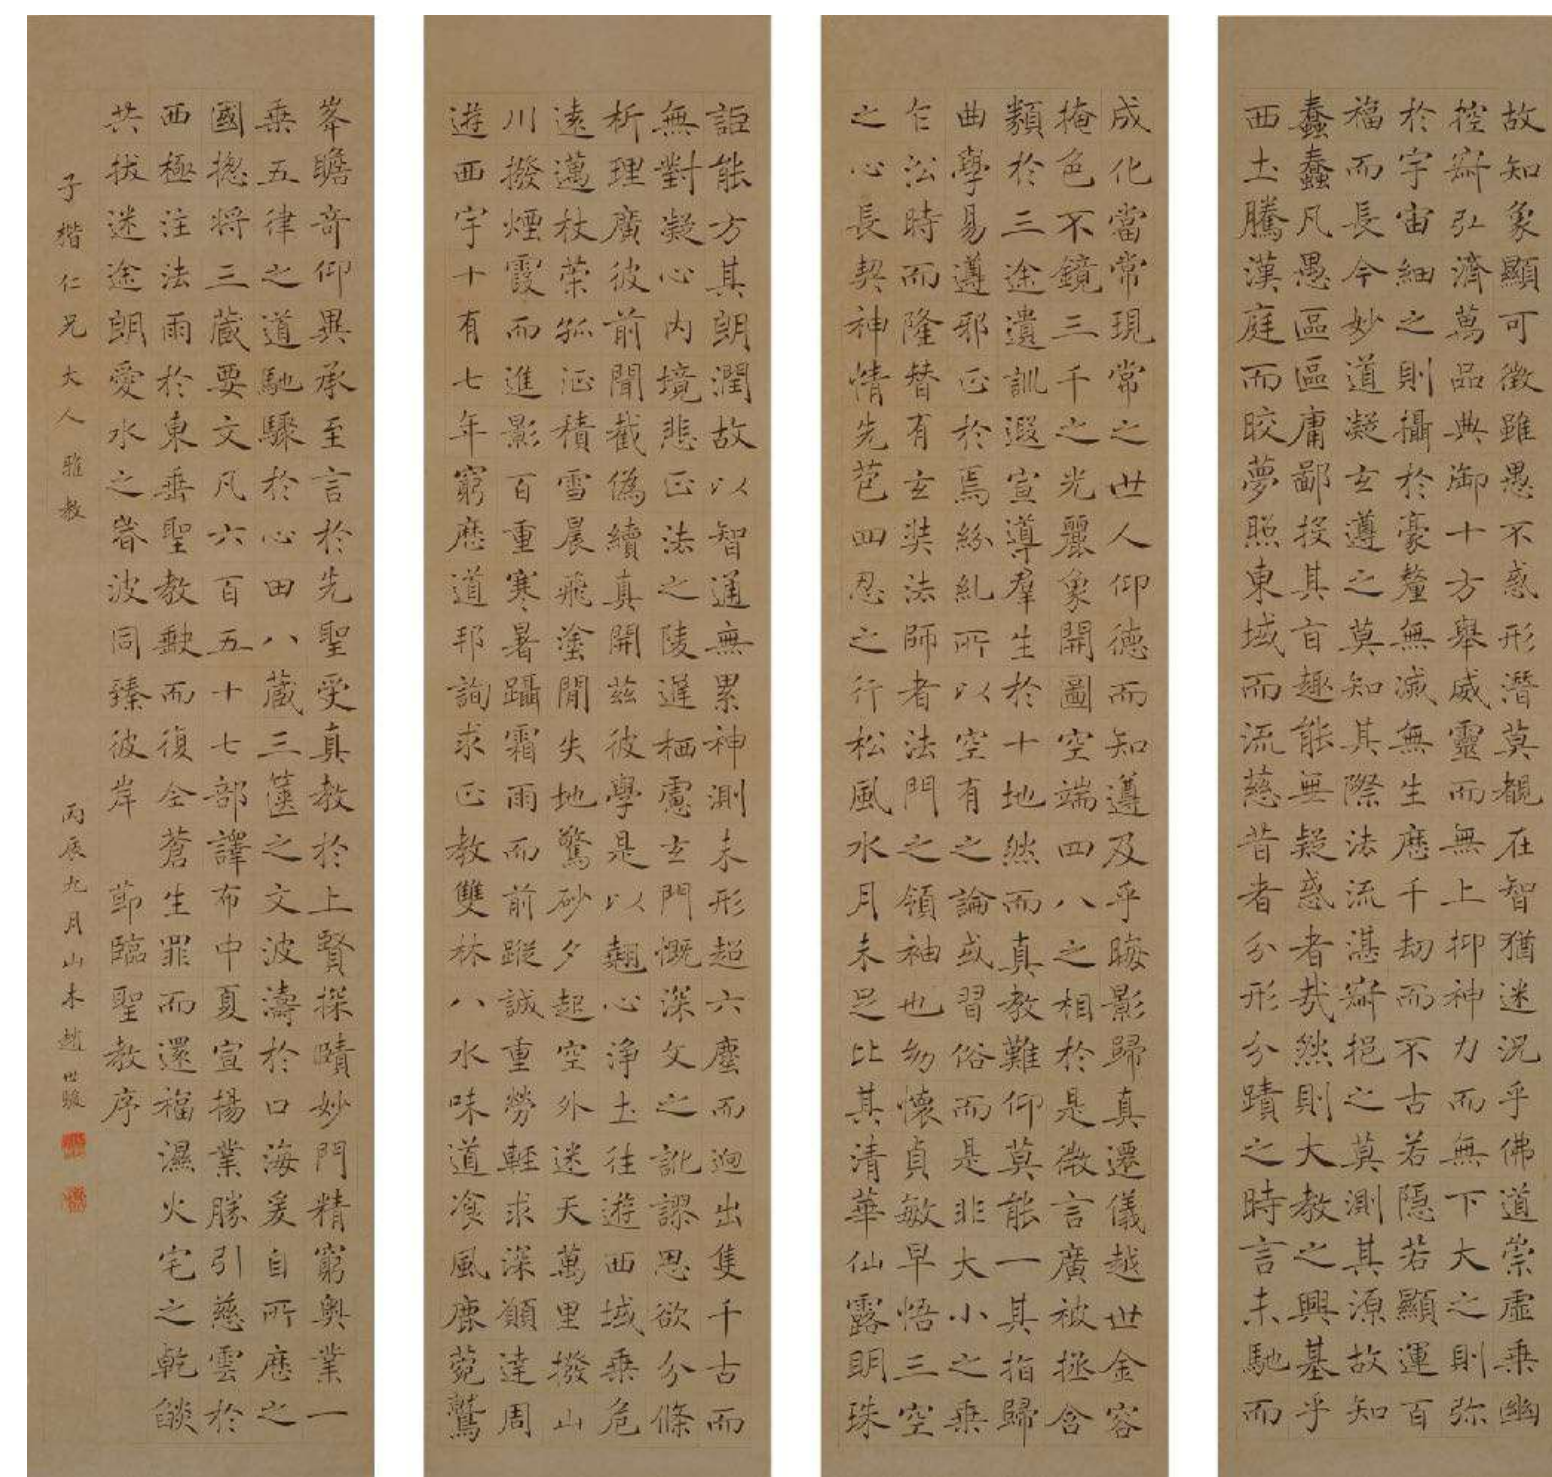 故知象顯可徵雖愚不惑形潛莫覩在智猶迷況乎佛道崇虛乘幽
控寂弘濟萬品典御十方舉威靈而無上抑神力而無下大之則弥
於宇宙細之則攝於豪釐無滅無生歷千劫而不古若隱若顯運百
福而長今妙道凝玄遵之莫知其際法流湛寂挹之莫測其源故知
蠢蠢凡愚區區庸鄙投其旨趣能無疑惑者哉然則大教之興基乎
西土騰漢庭而皎夢照東域而流慈昔者分形分蹟之時言未馳而
成化當常現常之世人仰德而知遵及乎晦影歸真遷儀越世金容
掩色不鏡三千之光麗象開圖空端四八之相於是微言廣被拯含
類於三途遺訓遐宣導羣生於十地然而真教難仰莫能一其指歸
曲學易遵邪正於焉紛糺所以空有之論或習俗而是非大小之乘
乍沿時而隆替有玄奘法師者法門之領袖也幼懷貞敏早悟三空
之心長契神情先苞四忍之行松風水月未足比其清華仙露明珠
詎能方其朗潤故以智通無累神測未形超六塵而迥出隻千古而
無對凝心內境悲正法之陵遲栖慮玄門慨深文之訛謬思欲分條
析理廣彼前聞截偽續真開茲彼學是以翹心淨土往遊西域乘危
遠邁杖策孤征積雪晨飛塗閒失地驚砂夕起空外迷天萬里撥山
川撥煙霞而進影百重寒暑躡霜雨而前蹤誠重勞輕求深願達周
遊西宇十有七年窮歷道邦詢求正教雙林八水味道湌風鹿菀鷲
峯瞻奇仰異承至言於先聖受真教於上賢探賾妙門精窮奧業一
乘五律之道馳驟於心田八藏三篋之文波濤於口海爰自所歷之
國揔將三藏要文凡六百五十七部譯布中夏宣揚業勝引慈雲於
西極注法雨於東垂聖教缺而復全蒼生罪而還福濕火宅之乾燄
共拔迷途朗愛水之昏波同臻彼岸 節臨聖教序
子楷仁兄大人雅教 丙辰九月山木趙世駿